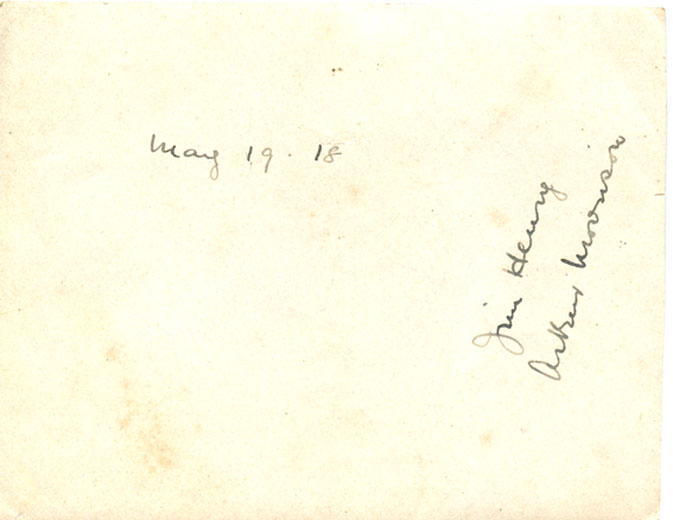 May 19. 18
Jim Henry
Arthur Morrison